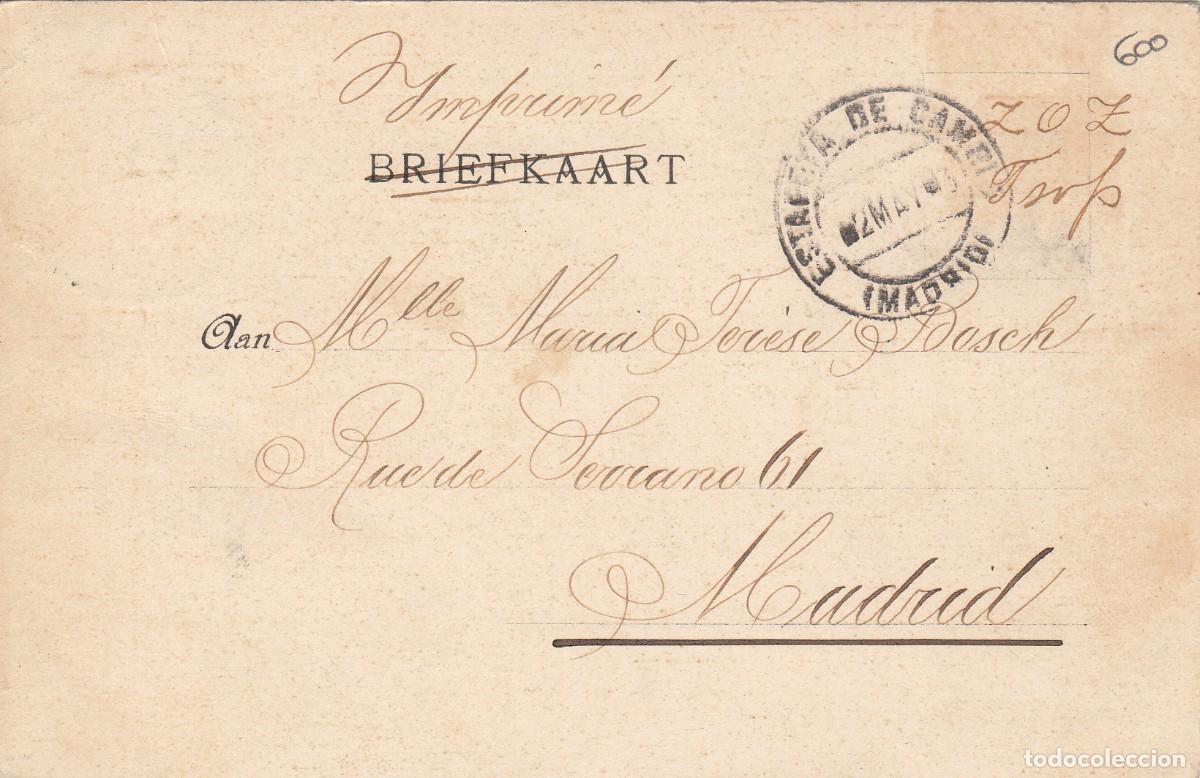 600
Imprimé
BRIEFKAART
ESTAFETA DE CAMB
2 MAY 3
(MADRID)
Z O Z
Aan Mlle Maria Terése Bosch
Rue de Serrano 61
Madrid
todocoleccion